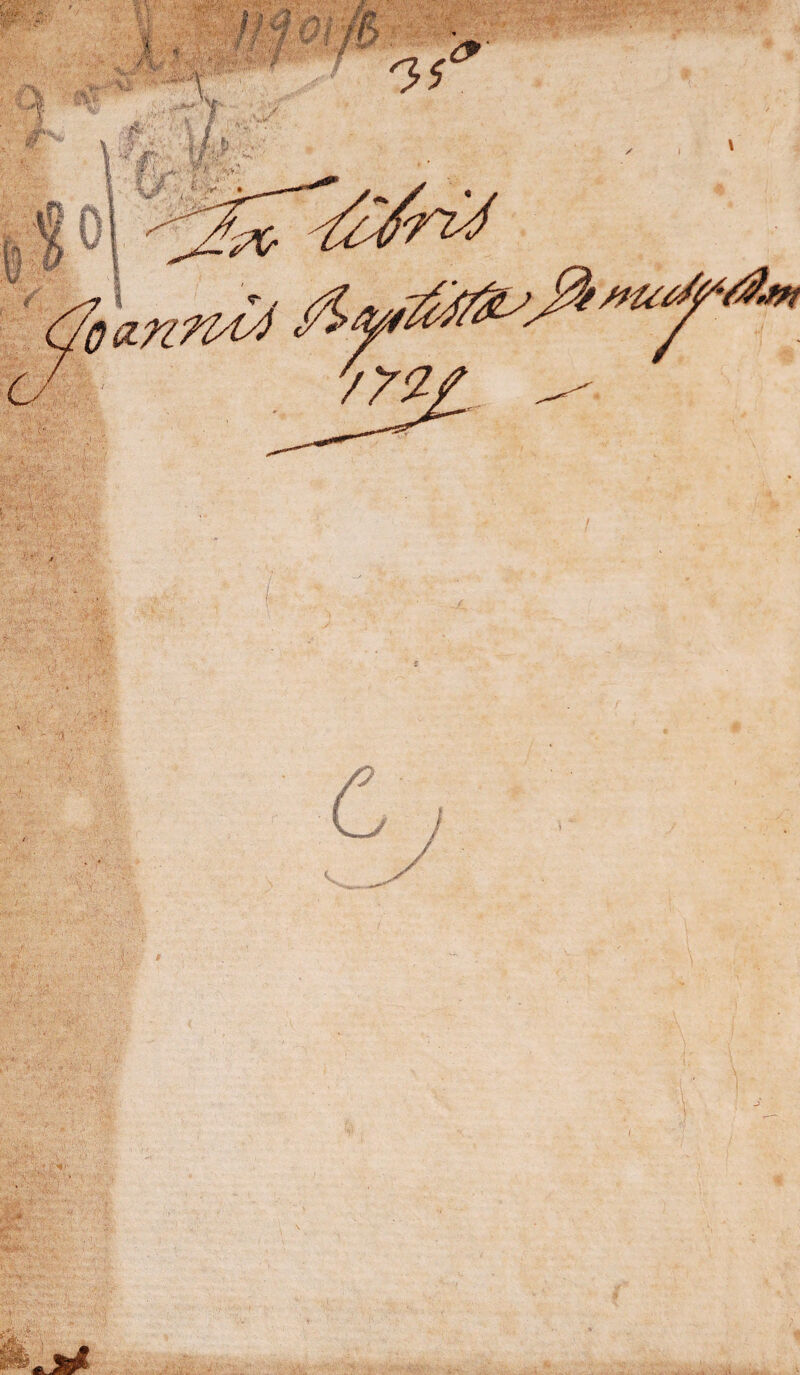 11901/B
2 vol.
35°
680/
Ex libris
Joannis Baptistæ De
1729
C